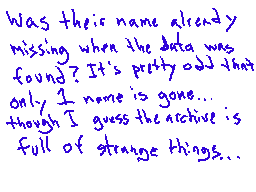 Was their name already
missing when the data was
found? It's pretty odd that
only 1 name is gone...
though I guess the archive is
full of strange things...